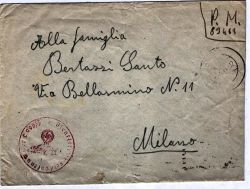 P. M.
83411
Alla famiglia
Bertazzi Santo
Via Bellarmino N. 11
Milano